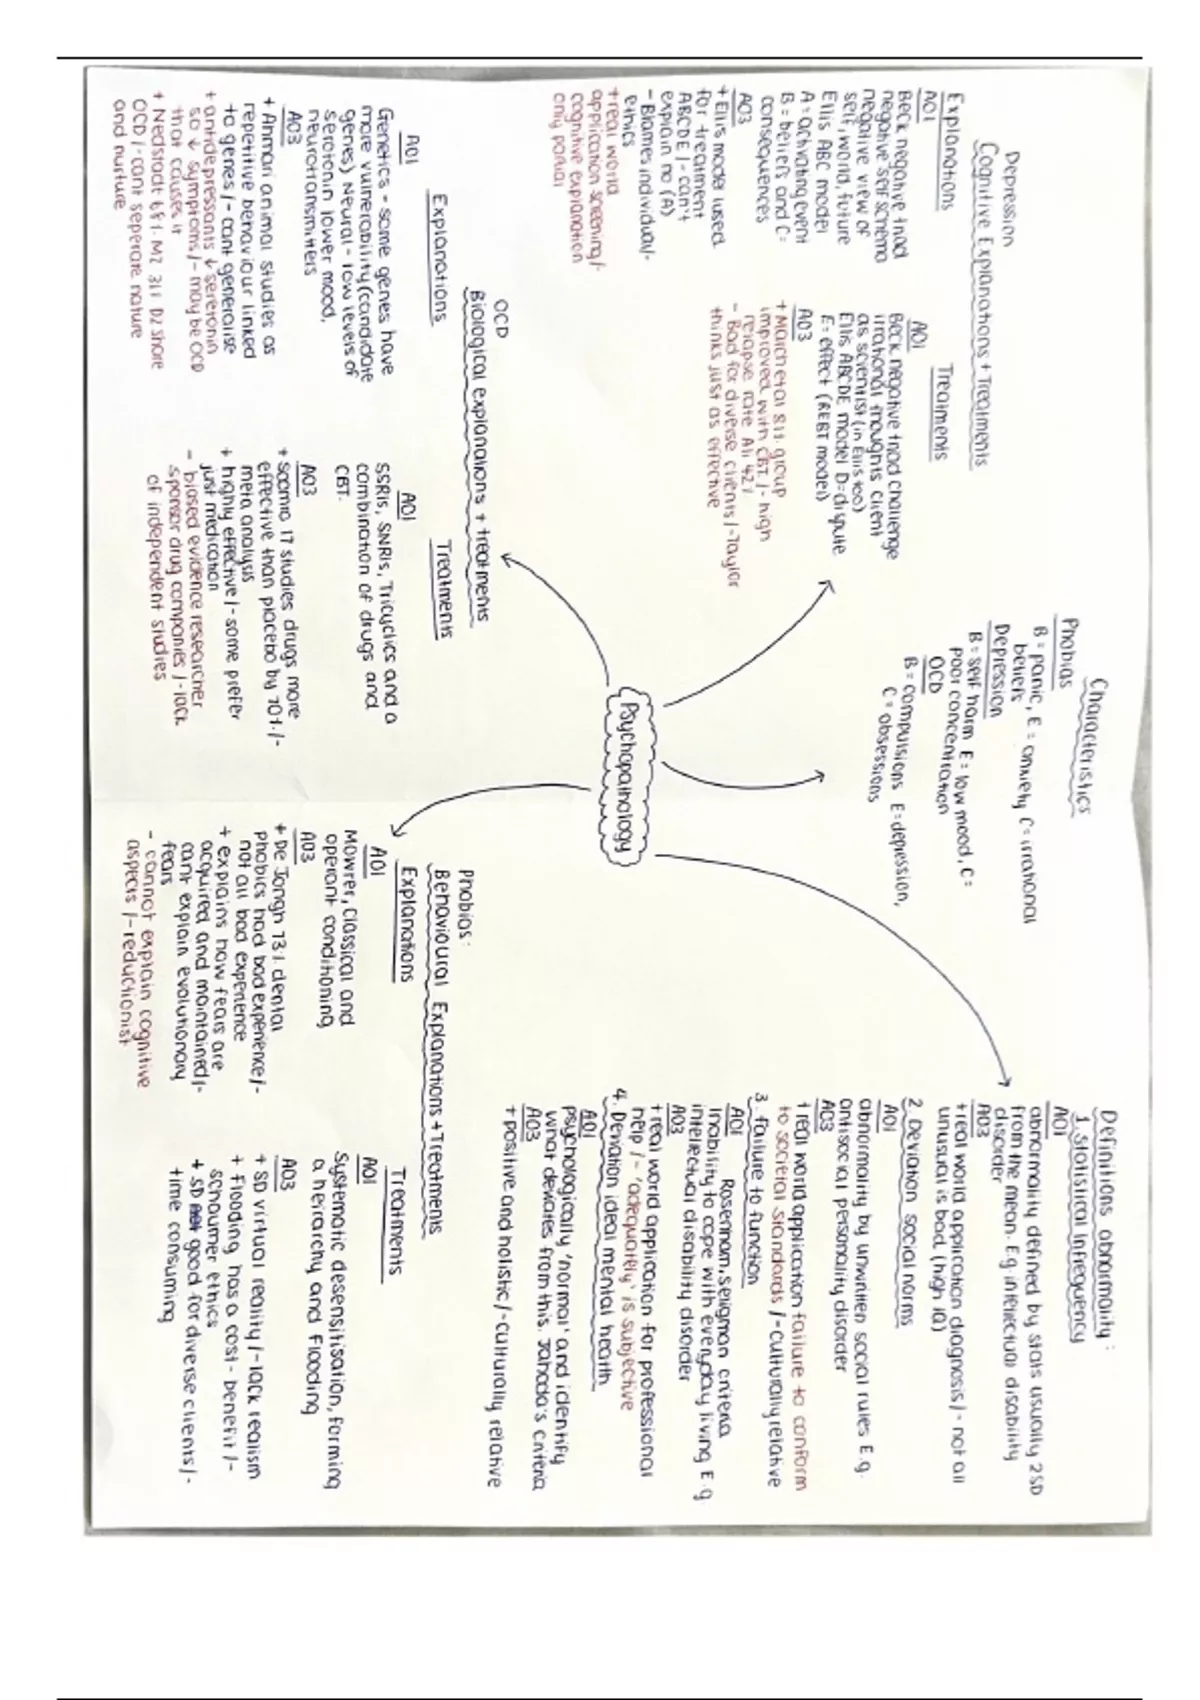 Psychopathology
Depression
Cognitive Explanations + Treatments
Explanations
AO1
Beck negative triad
negative self schema
negative view of
self, world, future
Ellis ABC model
A = activating event
B = beliefs and C =
consequences
AO3
+ Ellis model used
for treatment
ABCDE /- can't
explain no (A)
- Blames individual/-
ethics
+ real world
application screening/-
cognitive explanation
only partial
Treatments
AO1
Beck negative triad challenge
irrational thoughts client
as scientist (in Ellis too)
Ellis ABCDE model D= dispute
E= effect (REBT model)
AO3
+ March et al 81%. group
improved with CBT. /- high
relapse rate Ali 42%
- Bad for diverse clients /- Taylor
thinks just as effective
Characteristics
Phobias
B = panic, E = anxiety C = irrational
beliefs
Depression
B = self harm E = low mood, C =
poor concentration
OCD
B = compulsions E = depression,
C = obsessions
Definitions abnormality:
1. Statistical infrequency
AO1
abnormality defined by stats usually 2SD
from the mean. E.g intellectual disability
disorder
AO3
+ real world application diagnosis /- not all
unusual is bad, (high IQ)
2. Deviation social norms
AO1
abnormality by unwritten social rules E.g.
antisocial personality disorder
AO3
+ real world application failure to conform
to societal standards /- culturally relative
3. failure to function
AO1 Rosenham, seligman criteria
inability to cope with everyday living E.g
intellectual disability disorder
AO3
+ real world application for professional
help /- 'adequately' is subjective
4. Deviation ideal mental health
AO1
psychologically 'normal' and identify
what deviates from this. Jahoda's criteria
AO3
+ positive and holistic /- culturally relative
OCD
Biological explanations + treatments
Explanations
AO1
Genetics - some genes have
more vulnerability (candidate
genes) Neural - low levels of
serotonin lower mood,
neurotransmitters
AO3
+ Ahmari animal studies as
repetitive behaviour linked
to genes /- cant generalise
+ antidepressants ↓ serotonin
so ↓ symptoms /- may be OCD
that causes it
+ Nedstadt 68%. MZ 31% DZ share
OCD /- cant seperate nature
and nurture
Treatments
AO1
SSRIs, SNRIs, Tricyclics and a
combination of drugs and
CBT.
AO3
+ Soomro 17 studies drugs more
effective than placebo by 70%. /-
meta analysis
+ highly effective /- some prefer
just medication
- biased evidence researcher
sponsor drug companies /- lack
of independent studies
Phobias:
Behavioural Explanations + Treatments
Explanations
AO1
Mowrer, classical and
operant conditioning
AO3
+ De Jongh 73%. dental
phobics had bad experience /-
not all bad experience
+ explains how fears are
acquired and maintained /-
cant explain evolutionary
fears
- cannot explain cognitive
aspects /- reductionist
Treatments
AO1
Systematic desensitisation, forming
a heirarchy and flooding
AO3
+ SD virtual reality /- lack realism
+ Flooding has a cost-benefit /-
schaumer ethics
+ SD good for diverse clients /-
time consuming